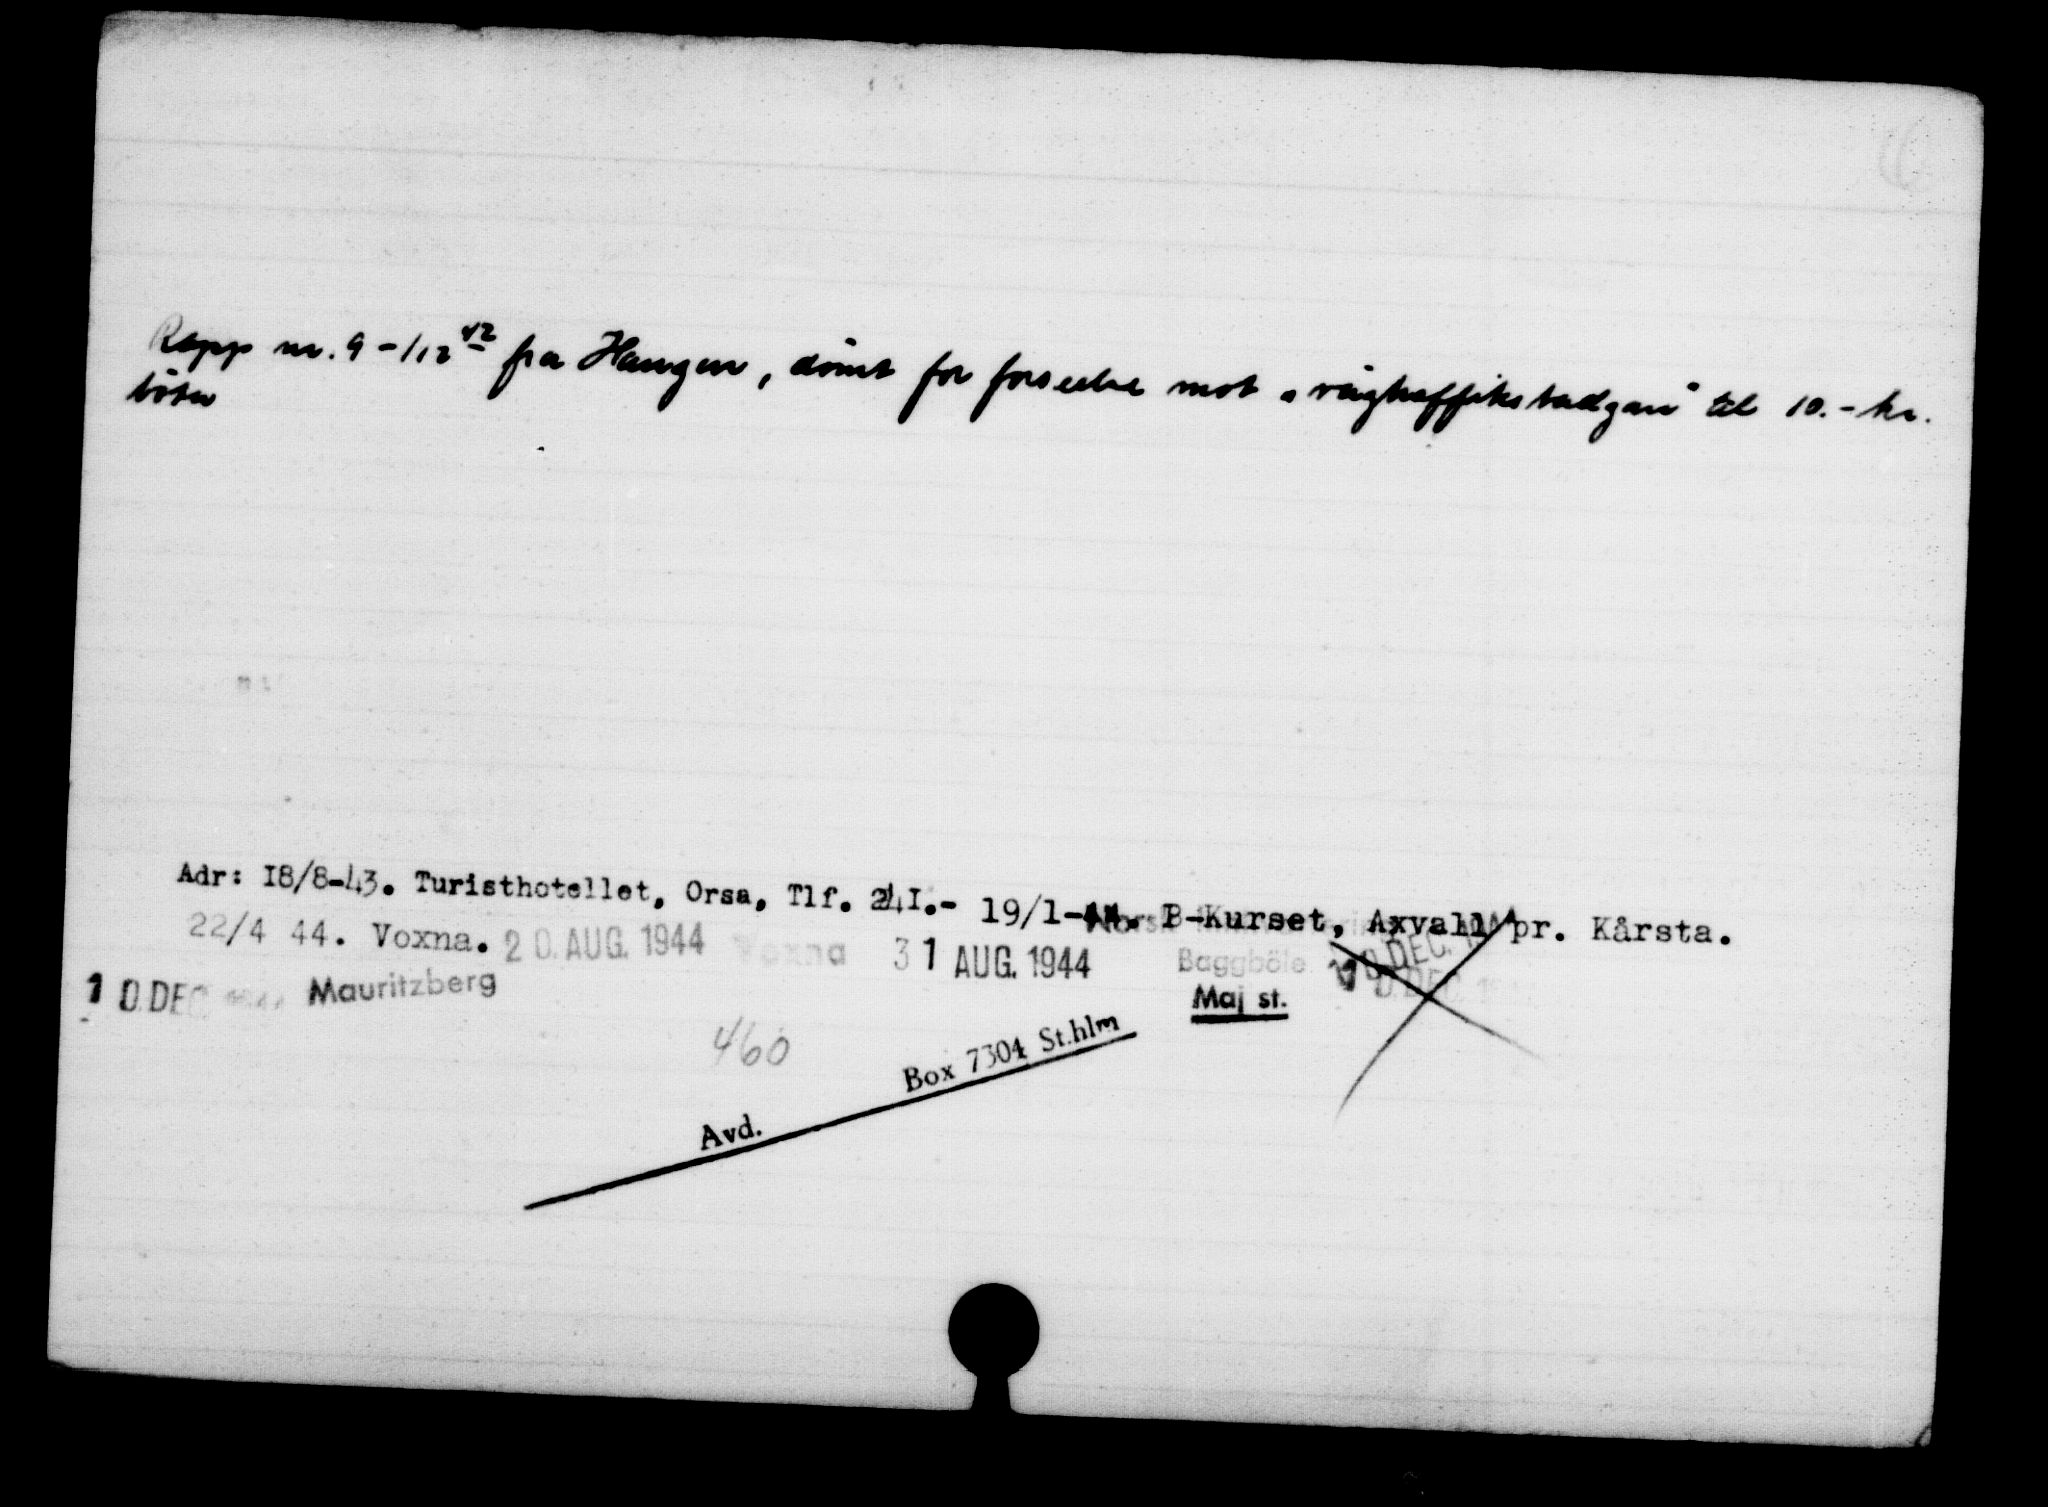 Rapp nr. 9 - 1/12 42 fra Haugen, dömt for forseelse mot „vägtraffikstadgan" til 10.- kr.
böter
Adr: I8/8-43. Turisthotellet, Orsa, Tlf. 24I.- 19/1-44. B-Kurset, Axvall pr. Kårsta.
22/4 44. Voxna. 20. AUG. 1944 Voxna 31 AUG. 1944 Baggböle 10. DEC.
10. DEC 1944 Mauritzberg Maj st.
460
Box 7304 St.hlm
Avd.